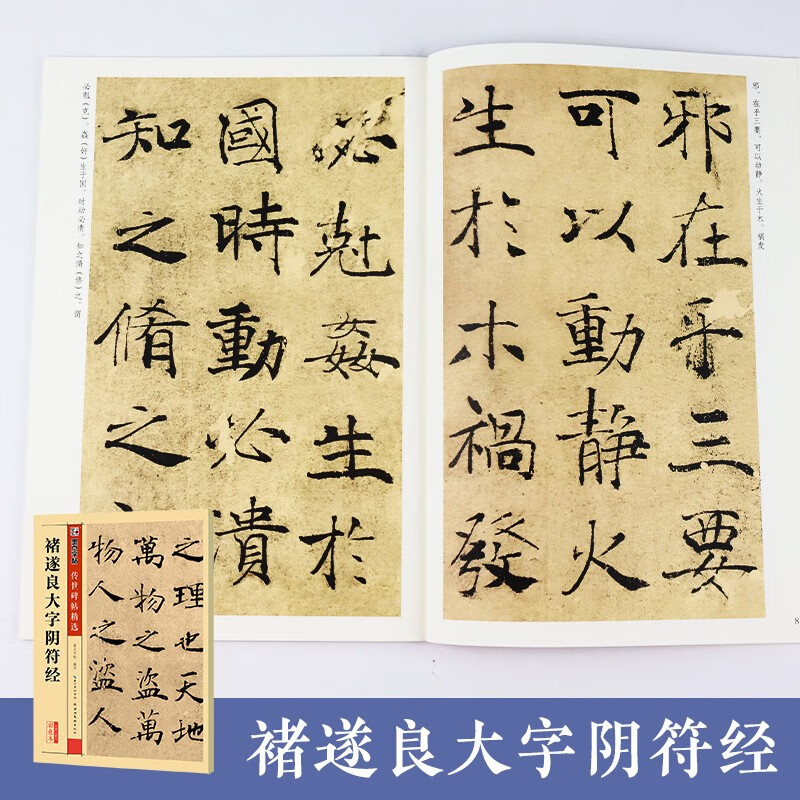 邪。在乎三要，可以动静。火生于木，祸发
邪在乎三要
可以動静火
生於木禍發
必尅姦生於
國時動必潰
知之脩之
必尅（克）。姦（奸）生于国，时动必溃。知之脩（修）之，谓
之理也天地
萬物之盜萬
物人之盜人
墨点字帖
传世碑帖精选
褚遂良大字阴符经
彩色本
褚遂良大字阴符经